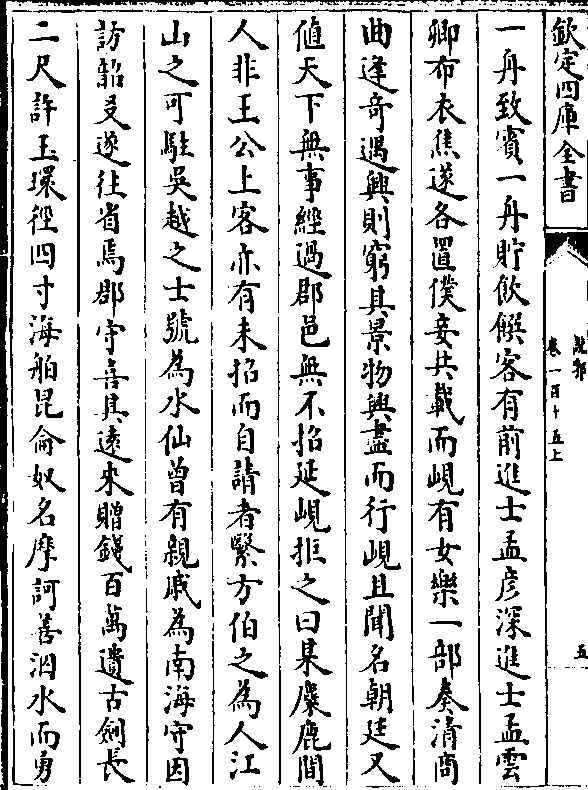 欽定四庫全書
說郛
卷一百十五上
五
一舟致賔一舟貯飲饌客有前進士孟彦深進士孟雲
卿布衣焦遂各置僕妾共載而峴有女樂一部奏清商
曲逢竒遇興則窮其景物興盡而行峴且聞名朝廷又
値天下無事經過郡邑無不招延峴拒之曰某麋鹿間
人非王公上客亦有未招而自請者繫方伯之為人江
山之可駐吳越之士號為水仙曽有親戚為南海守因
訪韶㕛遂往省焉郡守喜其遠來贈錢百萬遺古劍長
二尺許玉環徑四寸海舶昆侖奴名摩訶善泅水而勇